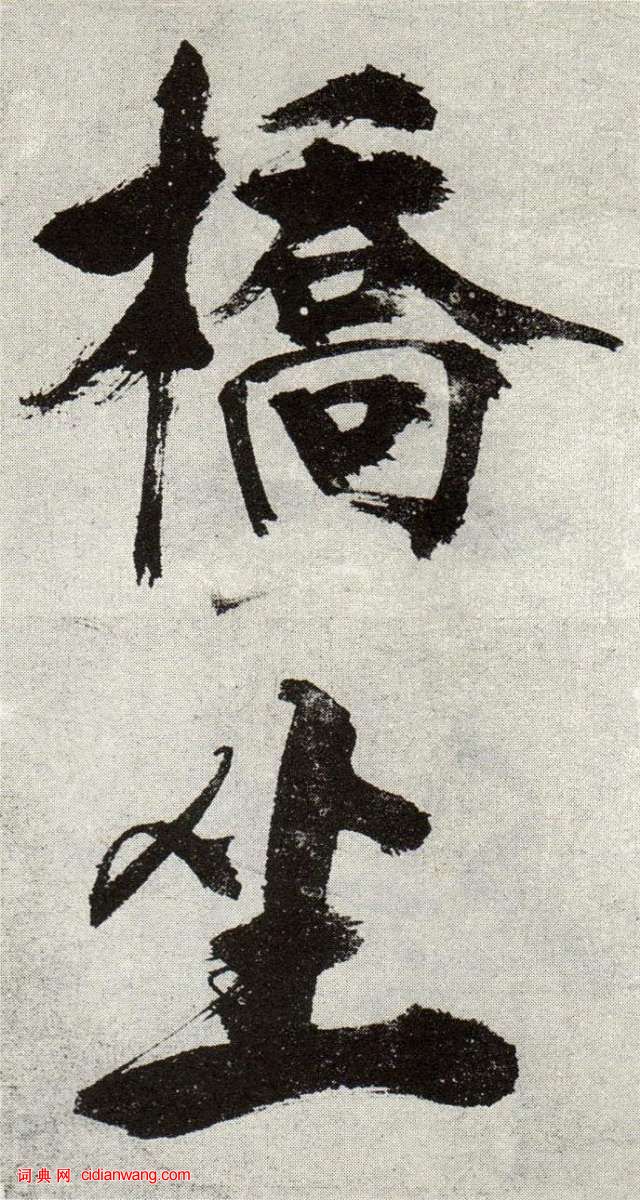 橋
坐
词典网 cidianwang.com